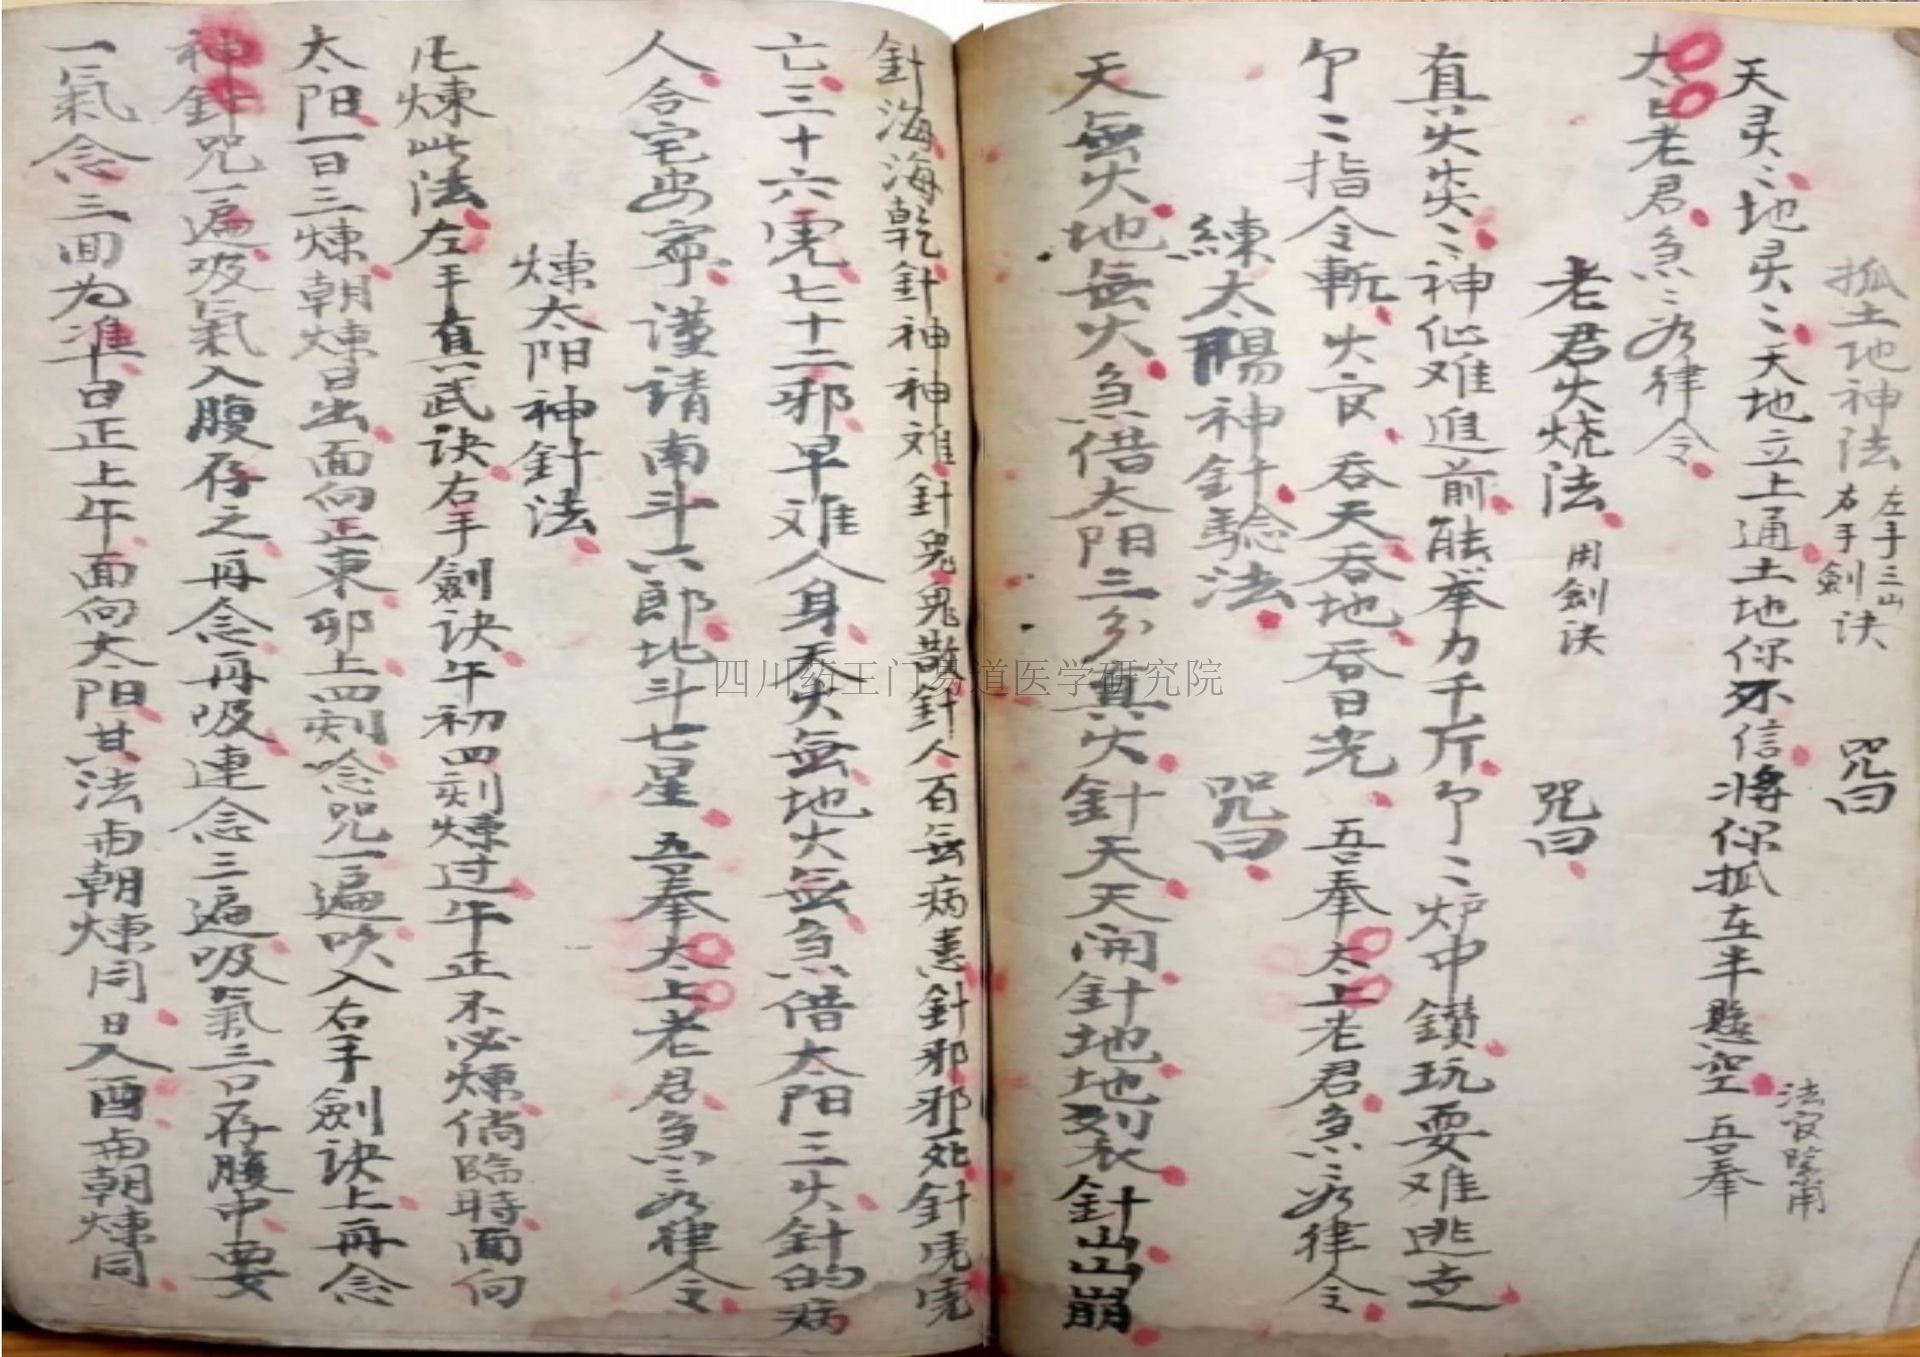 抓土地神法 左手三山 右手劍诀 咒曰
天灵〻地灵〻天地立上通土地你不信将你抓在半懸空 吾奉
法官除用
太上老君急〻为律令
老君火烧法 用劍决 咒曰
真火炎〻神仙难進前能举力千斤 炉中鑽玩耍难逃走
〻指令斬火官 吞天吞地吞日光 吾奉太上老君急〻为律令
練太陽神針驗法 咒曰
天無火地無火急借太阳三分真火針天天開針地地列衣針山山崩
針海海乾針神神难針鬼鬼散針人百無病恙針邪邪死針虎虎
亡三十六虎七十二邪早难人身天火無地火無急借太阳三火針的病
人合宅安寧謹請南斗六郎北斗七星 吾奉太上老君急〻为律令
煉太阳神針法
凡煉此法左手真武诀右手劍诀午初四刻煉过午正不必煉倘臨時面向
太阳一日三煉朝煉日出面向正東卯上四刻唸咒一遍吹入右手劍诀上再念
神針咒一遍吸氣入腹存之再念再吸連念三遍吸氣三口存腹中要
一氣念三回为準日正上午面向太阳其法與朝煉同日入酉與朝煉同
四川药王门易道医学研究院